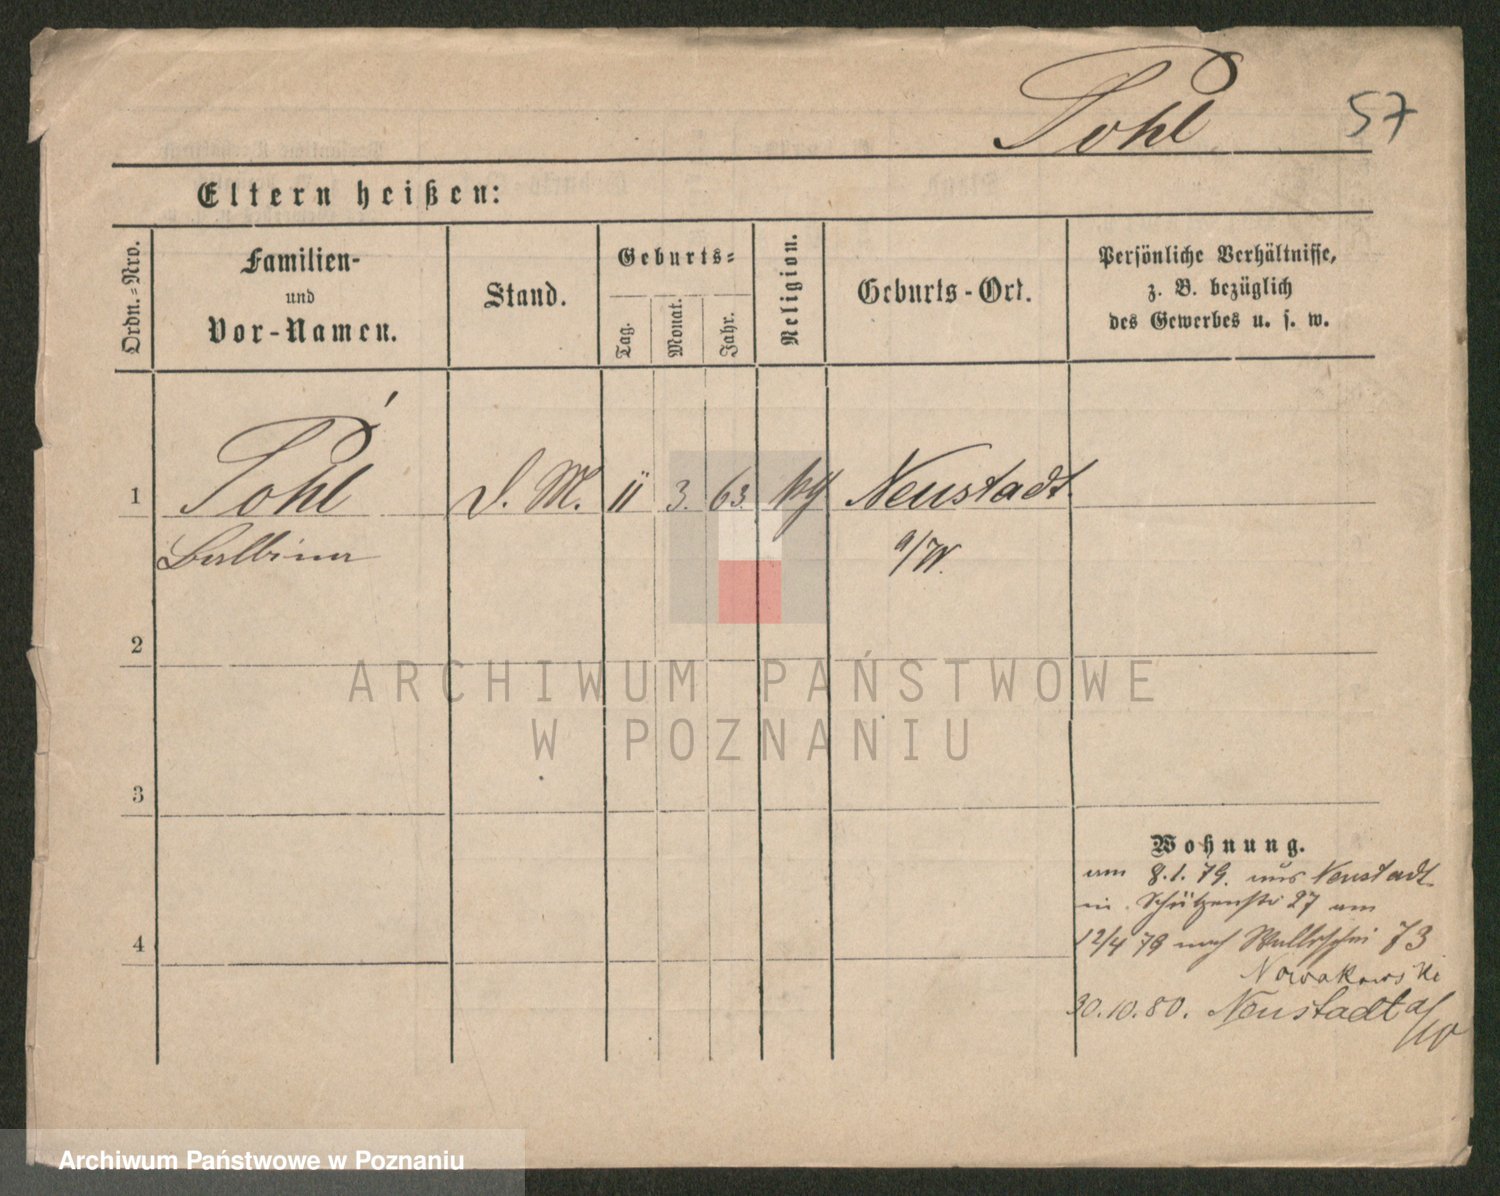 Pohl
57
Eltern heißen:
Ordn.-Nro.
Familien-
und
Vor-Namen.
Stand.
Geburts-
Tag.
Monat.
Jahr.
Religion.
Geburts-Ort.
Persönliche Verhältnisse,
z. B. bezüglich
des Gewerbes u. s. w.
1
Pohl
D. M.
11
3.
63.
Neustadt
Balbina
a/W.
2
ARCHIWUM PAŃSTWOWE
W POZNANIU
3
Wohnung.
am 8.1.79. aus Neustadt
in. Schützenstr 27 am
4
12/4 79 nach Wallischei 73
Nowakowski
30.10.80. Neustadt a/W
Archiwum Państwowe w Poznaniu